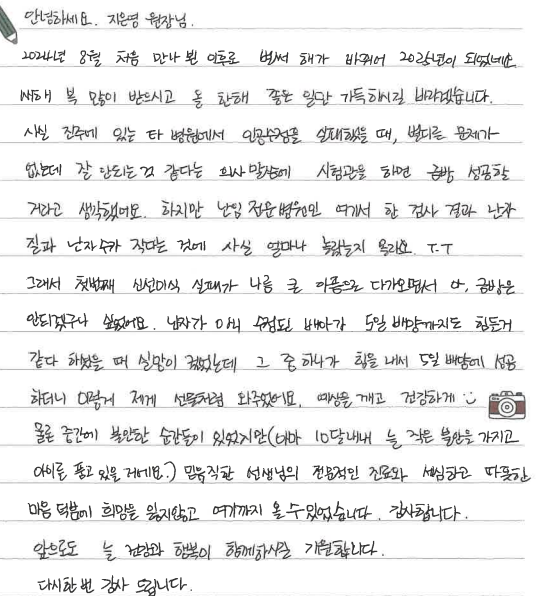 안녕하세요. 지은영 원장님.
2024년 8월 처음 만나 뵌 이후로 벌써 해가 바뀌어 2025년이 되었네요.
새해 복 많이 받으시고 올 한해 좋은 일만 가득하시길 바라겠습니다.
사실 진주에 있는 타 병원에서 인공수정을 실패했을 때, 별다른 문제가
없는데 잘 안되는 것 같다는 의사 말씀에 시험관을 하면 금방 성공할
거라고 생각했어요. 하지만 난임 전문병원인 여기서 한 검사 결과 난자
질과 난자수가 작다는 것에 사실 얼마나 놀랐는지 몰라요. T.T
그래서 첫번째 신선이식 실패가 나름 큰 아픔으로 다가오면서 아, 금방은
안되겠구나 싶었어요. 난자가 아닌 수정된 배아가 5일 배양까지도 힘든거
같다 하셨을 때 실망이 컸었는데 그 중 하나가 힘을 내서 5일 배양에 성공
하더니 이렇게 제게 선물처럼 와주었어요. 예상을 깨고 건강하게
물론 중간에 불안한 순간들이 있었지만 (아마 10달내내 늘 작은 불안을 가지고
아이를 품고 있을 거예요.) 믿음직한 선생님의 전문적인 진료와 세심하고 따뜻한
마음 덕분에 희망을 잃지않고 여기까지 올 수 있었습니다. 감사합니다.
앞으로도 늘 건강과 행복이 함께하시길 기원합니다.
다시한번 감사 드립니다.